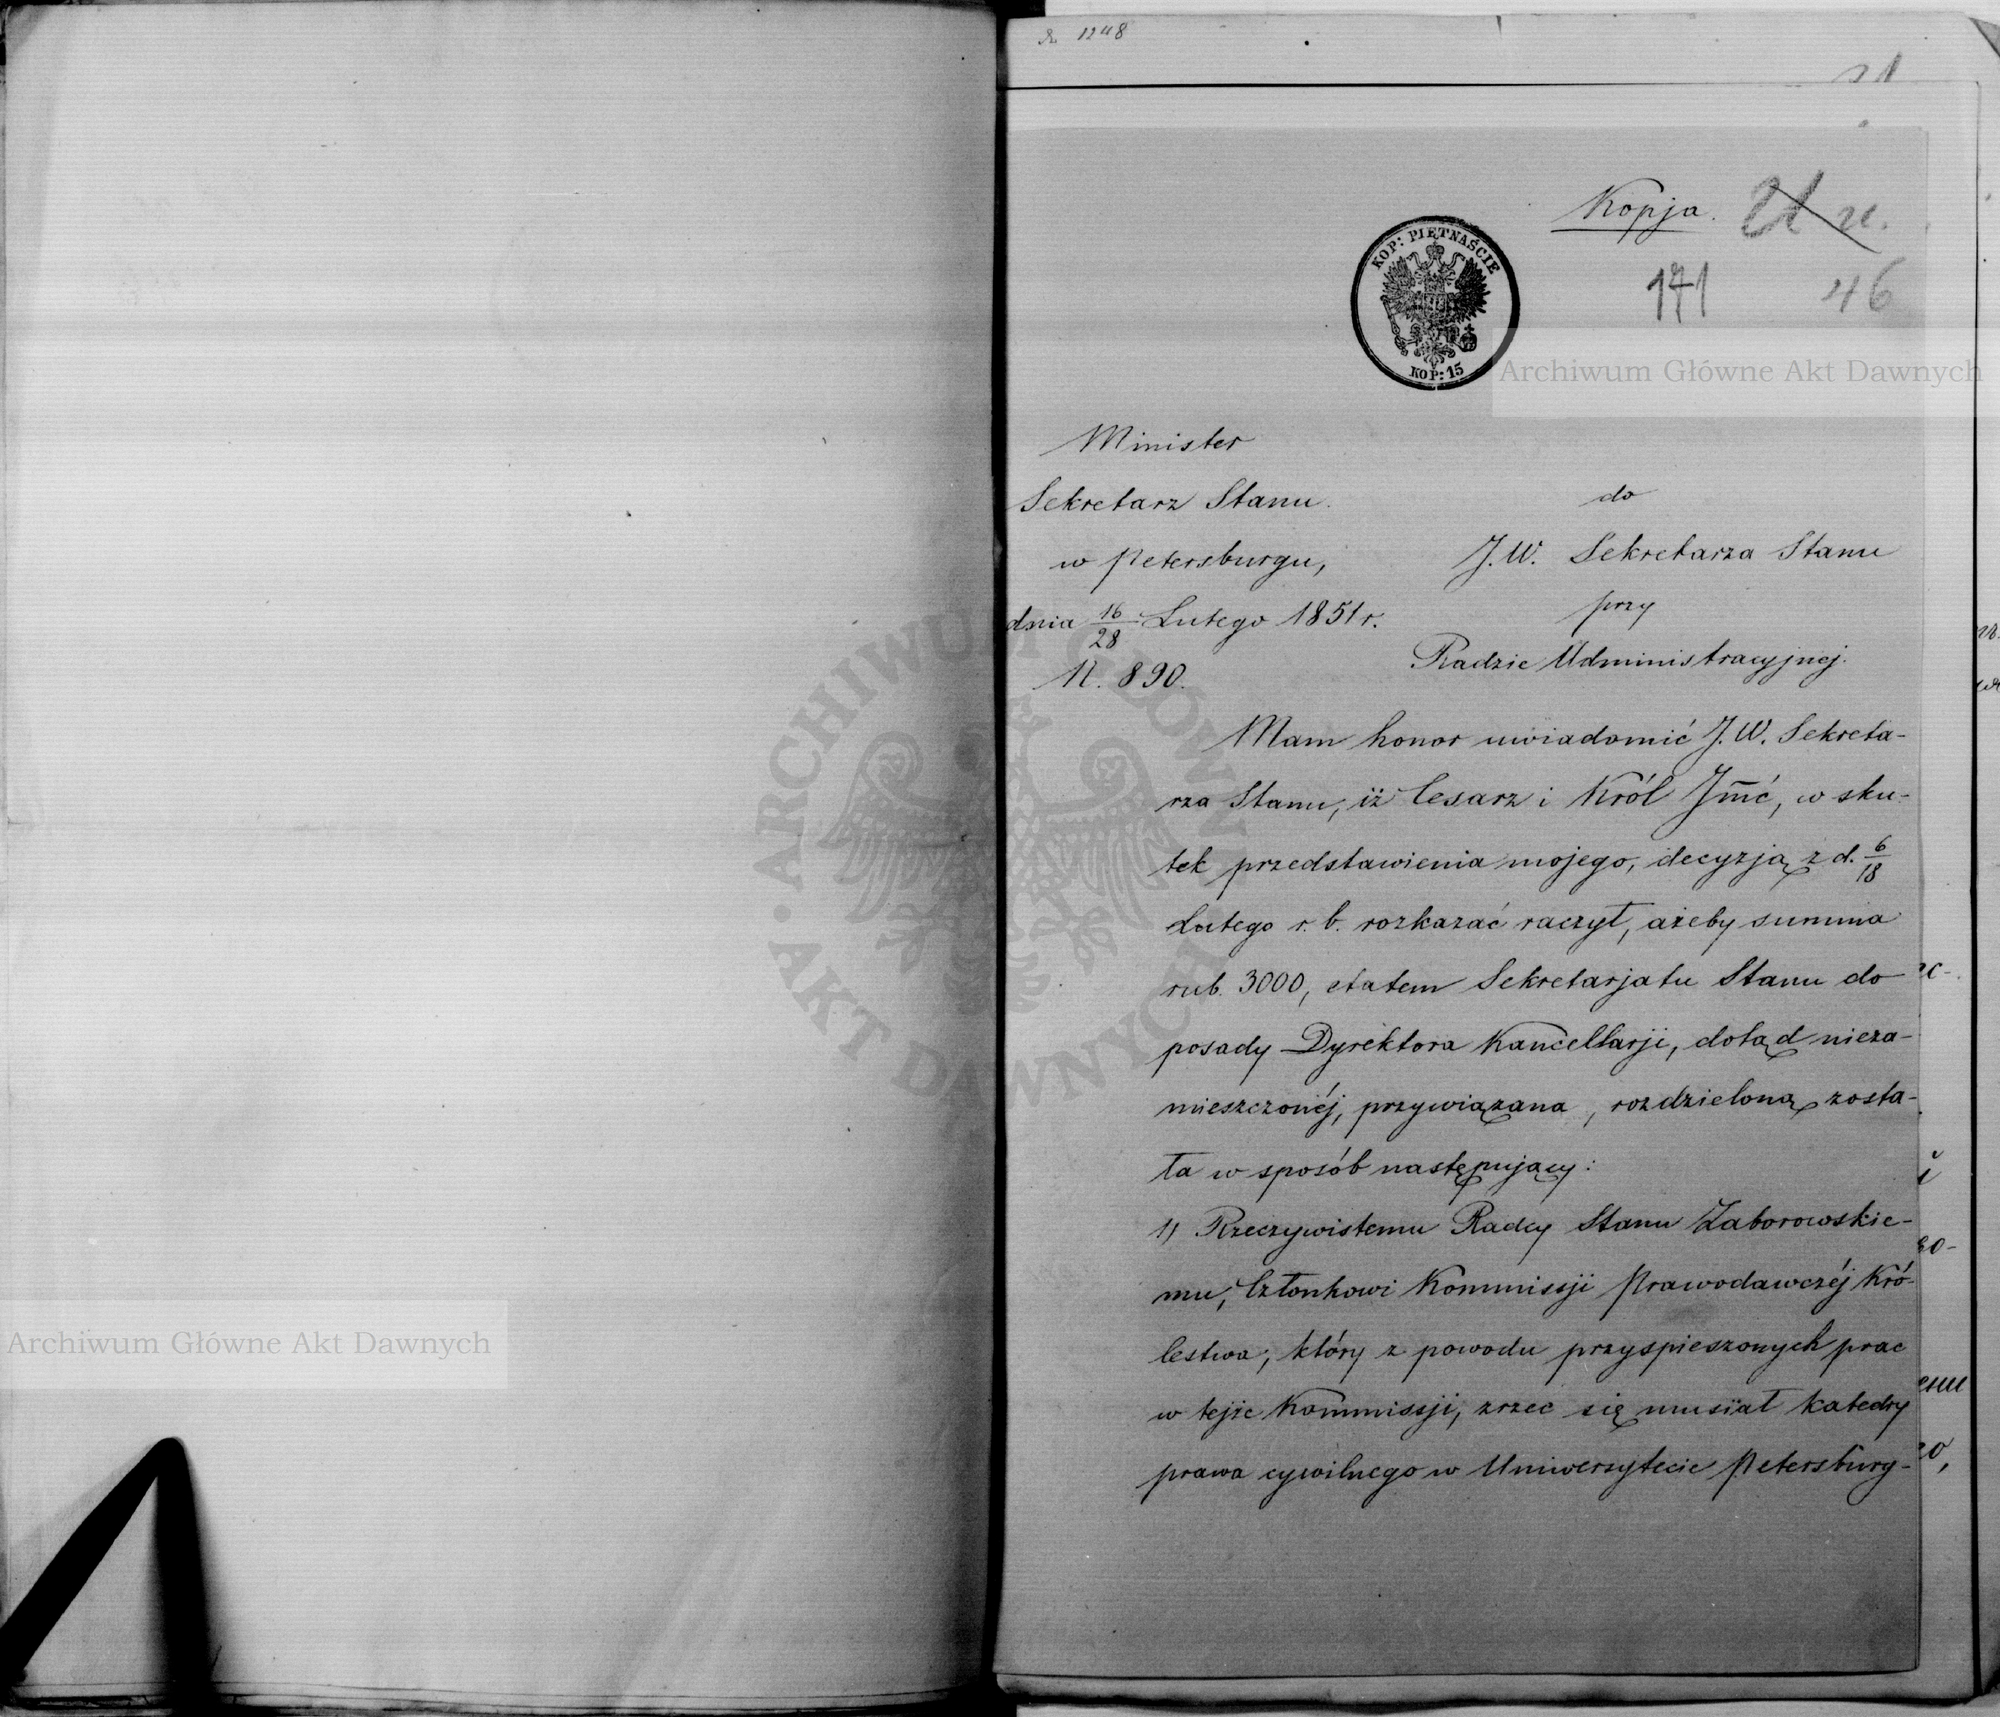 1248
21
Kopja.
21
171
46
KOP: PIĘTNAŚCIE
KOP: 15
Archiwum Główne Akt Dawnych
Minister
Sekretarz Stanu.
w Petersburgu,
dnia 16/28 Lutego 1851 r.
N. 890.
do
J. W. Sekretarza Stanu
przy
Radzie Administracyjnej.
Mam honor uwiadomić J. W. Sekreta-
rza Stanu, iż Cesarz i Król Jmć, w sku-
tek przedstawienia mojego, decyzją z d. 6/18
Lutego r. b. rozkazać raczył, ażeby summa
rub. 3000, etatem Sekretarjatu Stanu do
posady Dyrektora Kancellarji, dotąd nieza-
mieszczonéj, przywiązana, rozdzieloną zosta-
ła w sposób następujący:
1) Rzeczywistemu Radcy Stanu Zaborowskie-
mu, Członkowi Kommissji Prawodawczéj Kró-
lestwa, który z powodu przyspieszonych prac
w tejże Kommissji, zrzec się musiał katedry
prawa cywilnego w Uniwersytecie Petersburg-
ARCHIWUM GŁÓWNE AKT DAWNYCH
Archiwum Główne Akt Dawnych